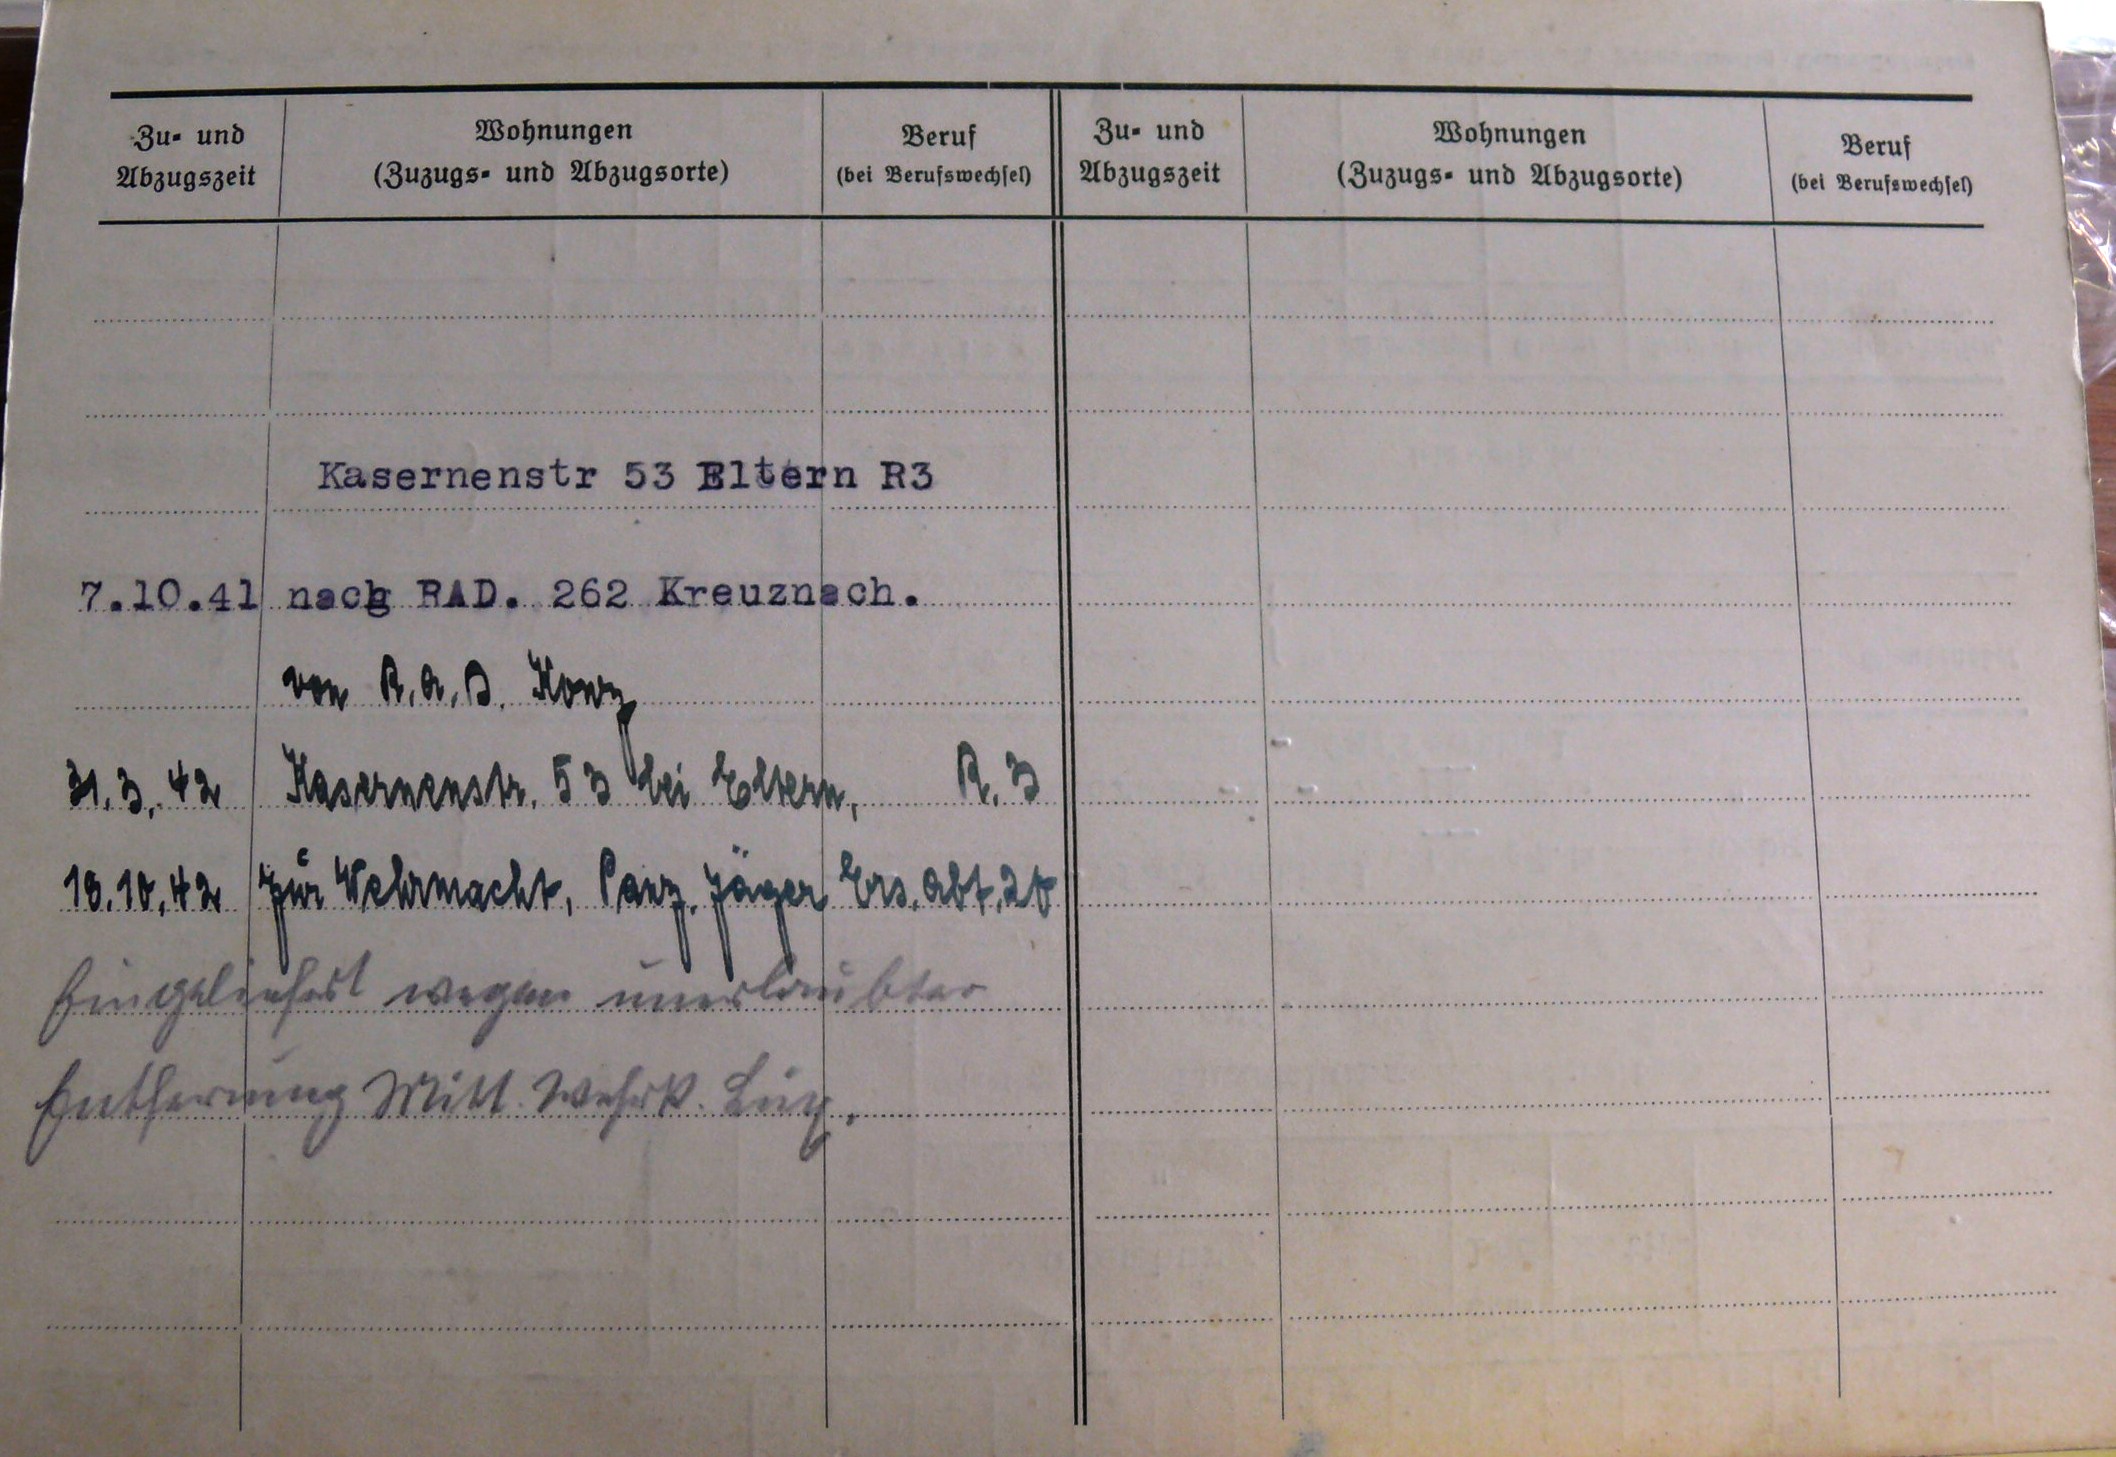 Zu- und Abzugszeit
Wohnungen (Zuzugs- und Abzugsorte)
Beruf (bei Berufswechsel)
Zu- und Abzugszeit
Wohnungen (Zuzugs- und Abzugsorte)
Beruf (bei Berufswechsel)
Kasernenstr 53 Eltern R3
7.10.41 nach RAD. 262 Kreuznach.
von R.A.D. Konz
31.3.42 Kasernenstr. 53 bei Eltern, R.3
18.10.42 zur Wehrmacht, Panz. Jäger Ers. Abt.
Eingeliefert wegen unerlaubter
Entfernung Mitt. Wehrk.